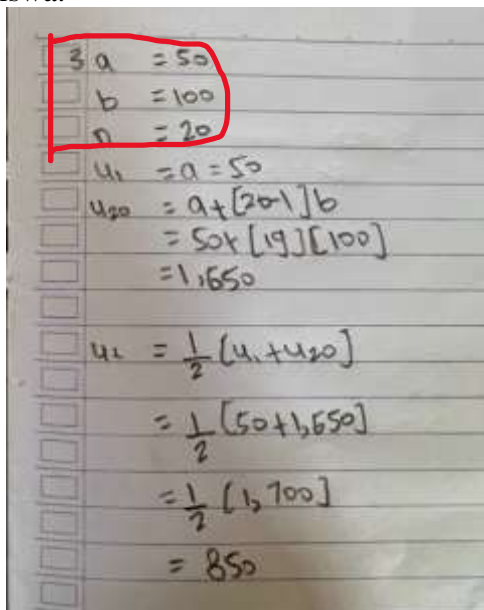 3 a = 50
b = 100
n = 20
u₁ = a = 50
u₂₀ = a + [20-1] b
= 50 + [19] [100]
= 1,650
uₜ = 1/2 [u₁ + u₂₀]
= 1/2 [50 + 1,650]
= 1/2 [1,700]
= 850